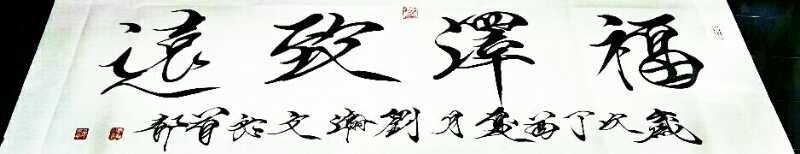 福澤致遠
歲次丁酉夏月劉文於首都